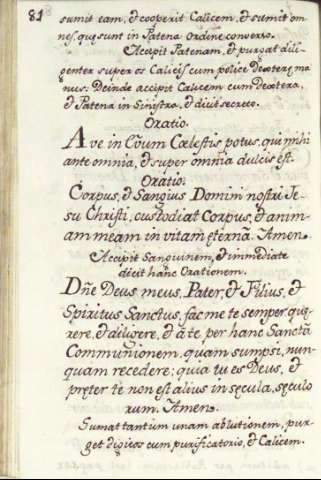 81
sumit eam, et cooperit Calicem, et sumit om
nes, qui sunt in Patena ordine converso.
Accipit Patenam, et purgat dili
genter super os Calicis cum police Dexteræ ma
nus. Deinde accipit Calicem cum Dextera,
et Patena in Sinistra, et dicit secreto.
Oratio.
Ave in Ævum Cælestis potus, qui mihi
ante omnia, et super omnia dulcis est.
Oratio.
Corpus, et Sangius Domini nostri Je-
su Christi, custodiat Corpus, et anim-
am meam in vitam ęternã. Amen.
Accipit Sanguinem, et immediate
dicit hanc Orationem.
Dñe Deus meus, Pater, et Filius, et
Spiritus Sanctus, fac me te semper quę-
rere, et diligere, et à te per hanc Sanctã
Communionem, quam sumpsi, nun-
quam recedere; quia tu es Deus, et
pręter te non est alius in sęcula, sęculo
rum. Amen.
Sumat tantum unam ablutionem, pur-
get digitos cum purificatorio, et Calicem.